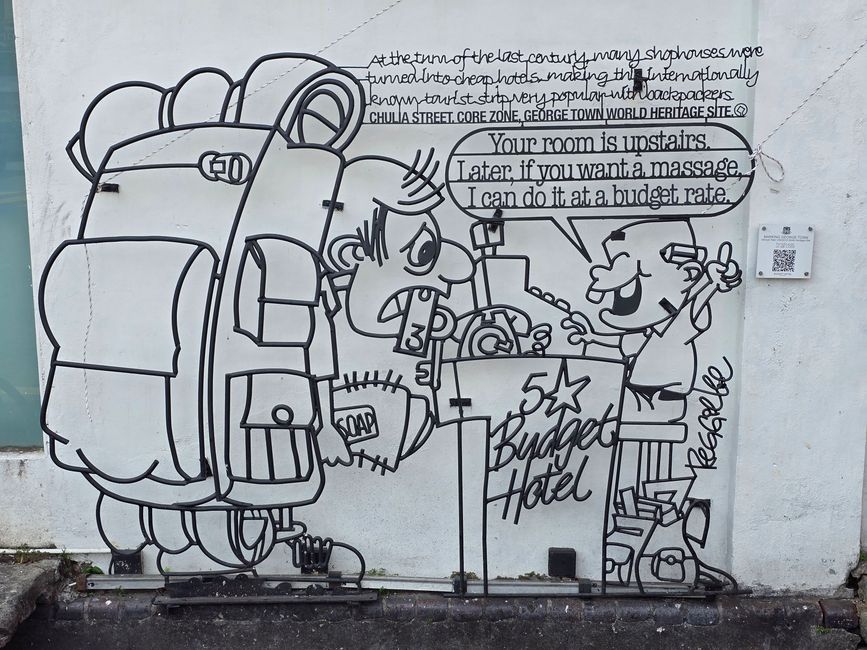 At the turn of the last century, many shophouses were
turned into cheap hotels, making this internationally
known tourist strip very popular with backpackers.
CHULIA STREET, CORE ZONE, GEORGE TOWN WORLD HERITAGE SITE.
Your room is upstairs.
Later, if you want a massage,
I can do it at a budget rate.
MARKING GEORGE TOWN
3
SOAP
5
Budget
Hotel
Reggie Lee